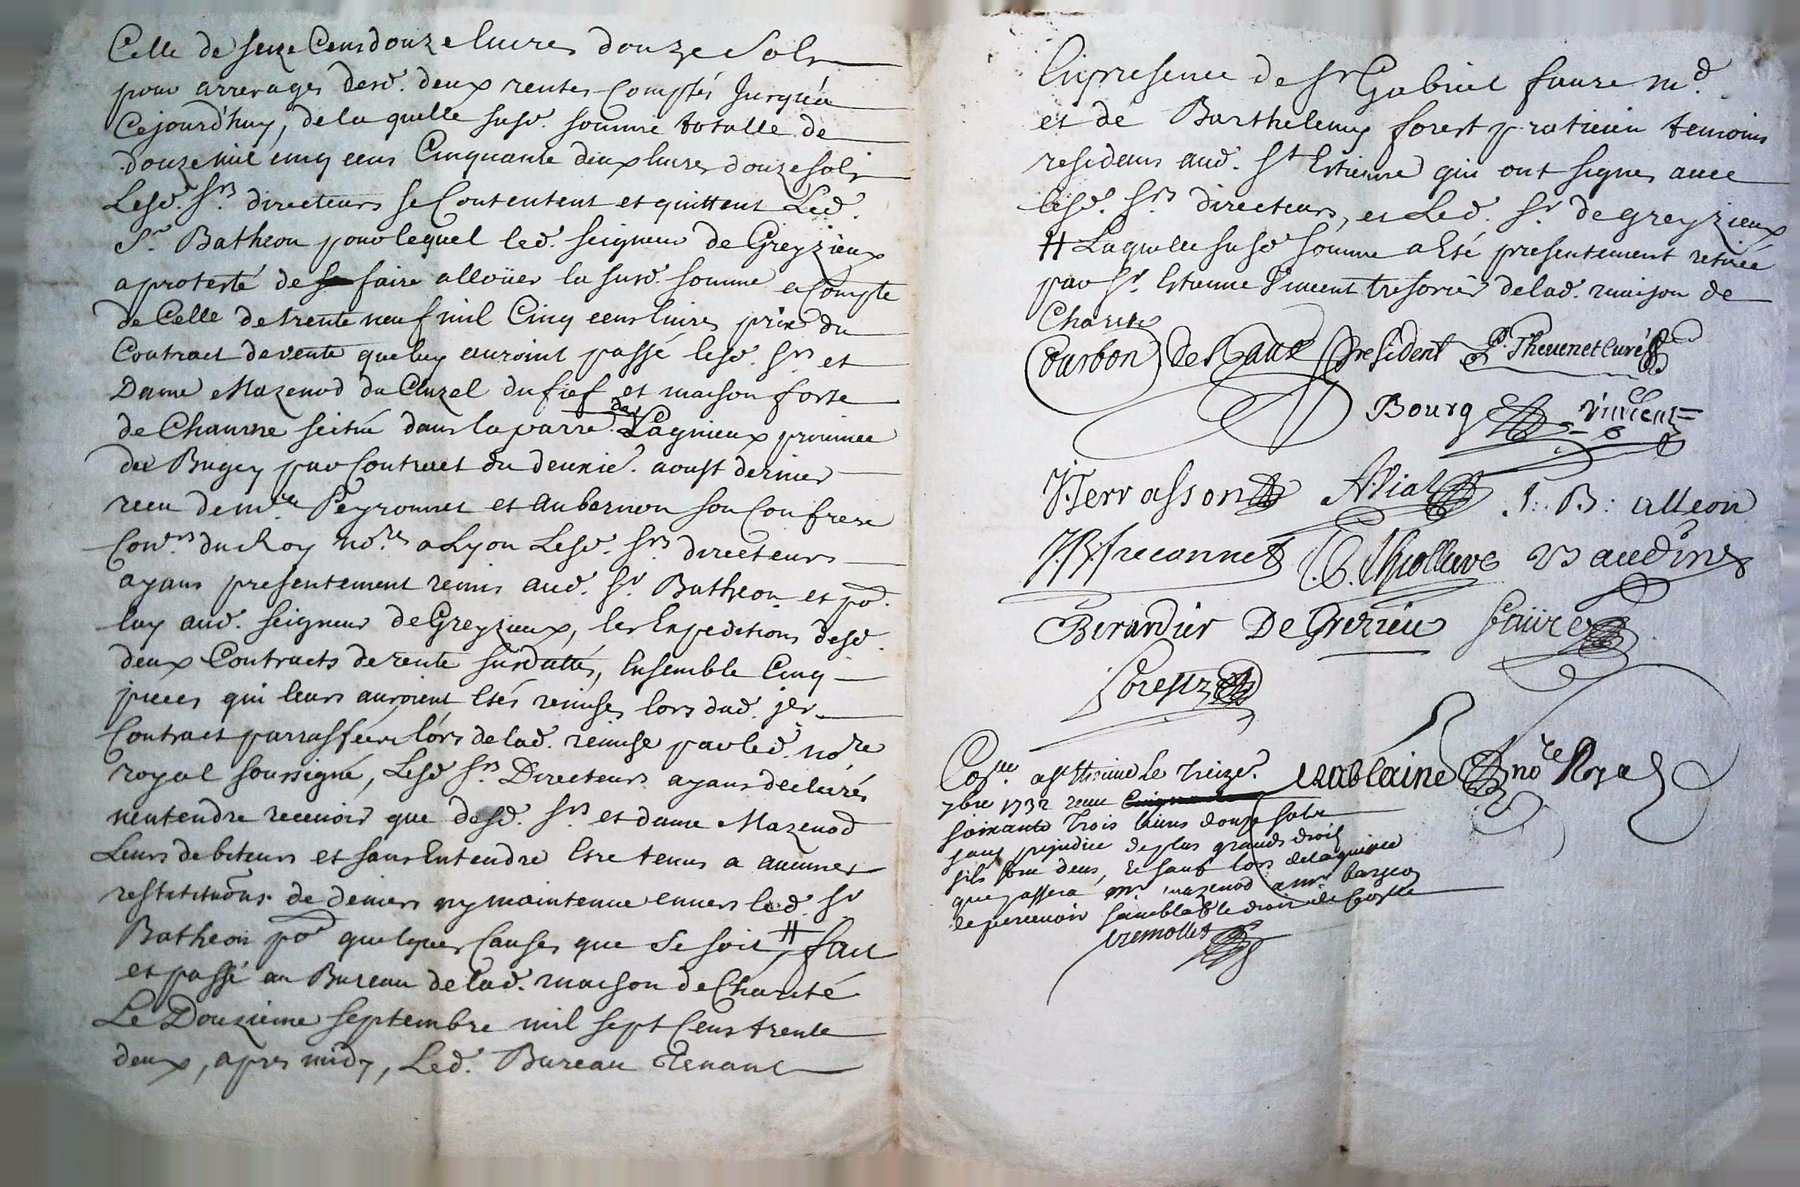 Celle de seize Cens douze livres douze Sols
pour arrerages desd. deux rentes Comptés Jusqu'a
Cejourd'huy, de la quelle susd. somme totalle de
douze mil cinq cens Cinquante deux livres douze sols
Lesd. Srs directeurs se Contentent et quittent Led.
Sr. Batheon pour lequel led. seigneur de Greyzieux
a protesté de faire alloüer la susd. somme a Compte
de Celle de trente neuf mil Cinq cens livres prix du
Contract de vente que luy auroint passé lesd. Srs et
Dame Mazenod du Cluzel du fief et maison forte
de Chaumne scitué dans la parr. de Lagnieux province
du Bugey par Contract du deuxie. aoust dernier
receu de me Peyronnet et aubernon son Confrere
Conrs. du Roy nores a Lyon Lesd. Srs directeurs
ayans presentement remis aud. Sr Batheon et pr.
luy aud. seigneur de Greyzieux, les Expeditions desd.
deux Contracts de rente susdattés, Ensemble Cinq
pieces qui leurs auroient Etés remises lors dud. jer.
Contract parraffées lors de lad. remise par led. nore
royal soussigné, Lesd. Srs Directeurs ayans declarés
n'entendre recevoir que desd. Srs et dame Mazenod
Leurs debiteurs et sans Entendre Etre tenus a aucunes
restitutions de deniers ny maintenue envers led. Sr
Batheon pr quelques Causes que Se soit # fait
et passé au Bureau de lad. maison de Charité
Le Douzieme septembre mil sept Cens trente
deux, apres midy, Led. Bureau tenant
En presence de Sr Gabriel faure md.
et de Barthelemy forest praticien temoins
residens aud. St Estienne qui ont signes avec
lesd. Srs directeurs, et Led. Sr de greyzieux
# Laquelle susd. somme a Eté presentement retirée
par Sr. Estienne Vincent tresorier de lad. maison de
Charité
Courbon president P. Thevenet curé
Bourg Vincent
J. Tervasson Alliat J: B: alleon
J. B. frecannet Thiollere Vaudine
Berardier De Grezieu faure
forest
Coslé a St Etienne Le treize.
7bre 1732 receu
soixante trois livres douze sols
sans prejudice de plus grands droits
sils sont deus, et sauf lors de la quittce
que passera mr mazenod
de percevoir semblable droit de Cosle
tremollet
nablaine nore Royal